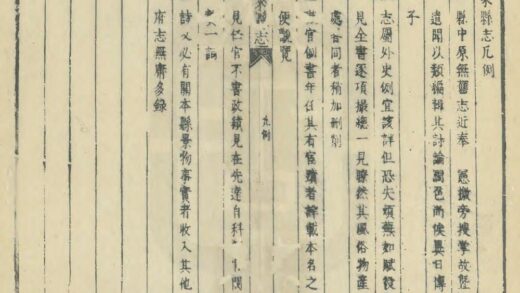 縣志凡例
縣中原無舊志近奉 憲檄旁搜掌故暨
遺聞以類編輯其討論潤色尚俟異日博
子
志屬外史例宜該詳但恐失煩蕪如賦役
見全書逐項撮總一見瞭然其風俗物產
處合同者稍加刪削
官例書年任其有宦蹟者詳載本名之
便覽覽
志
凡例
見任官不書政績見在先達自科
一誦
詩文必有關本縣景物事實者收入其他
府志無庸多錄